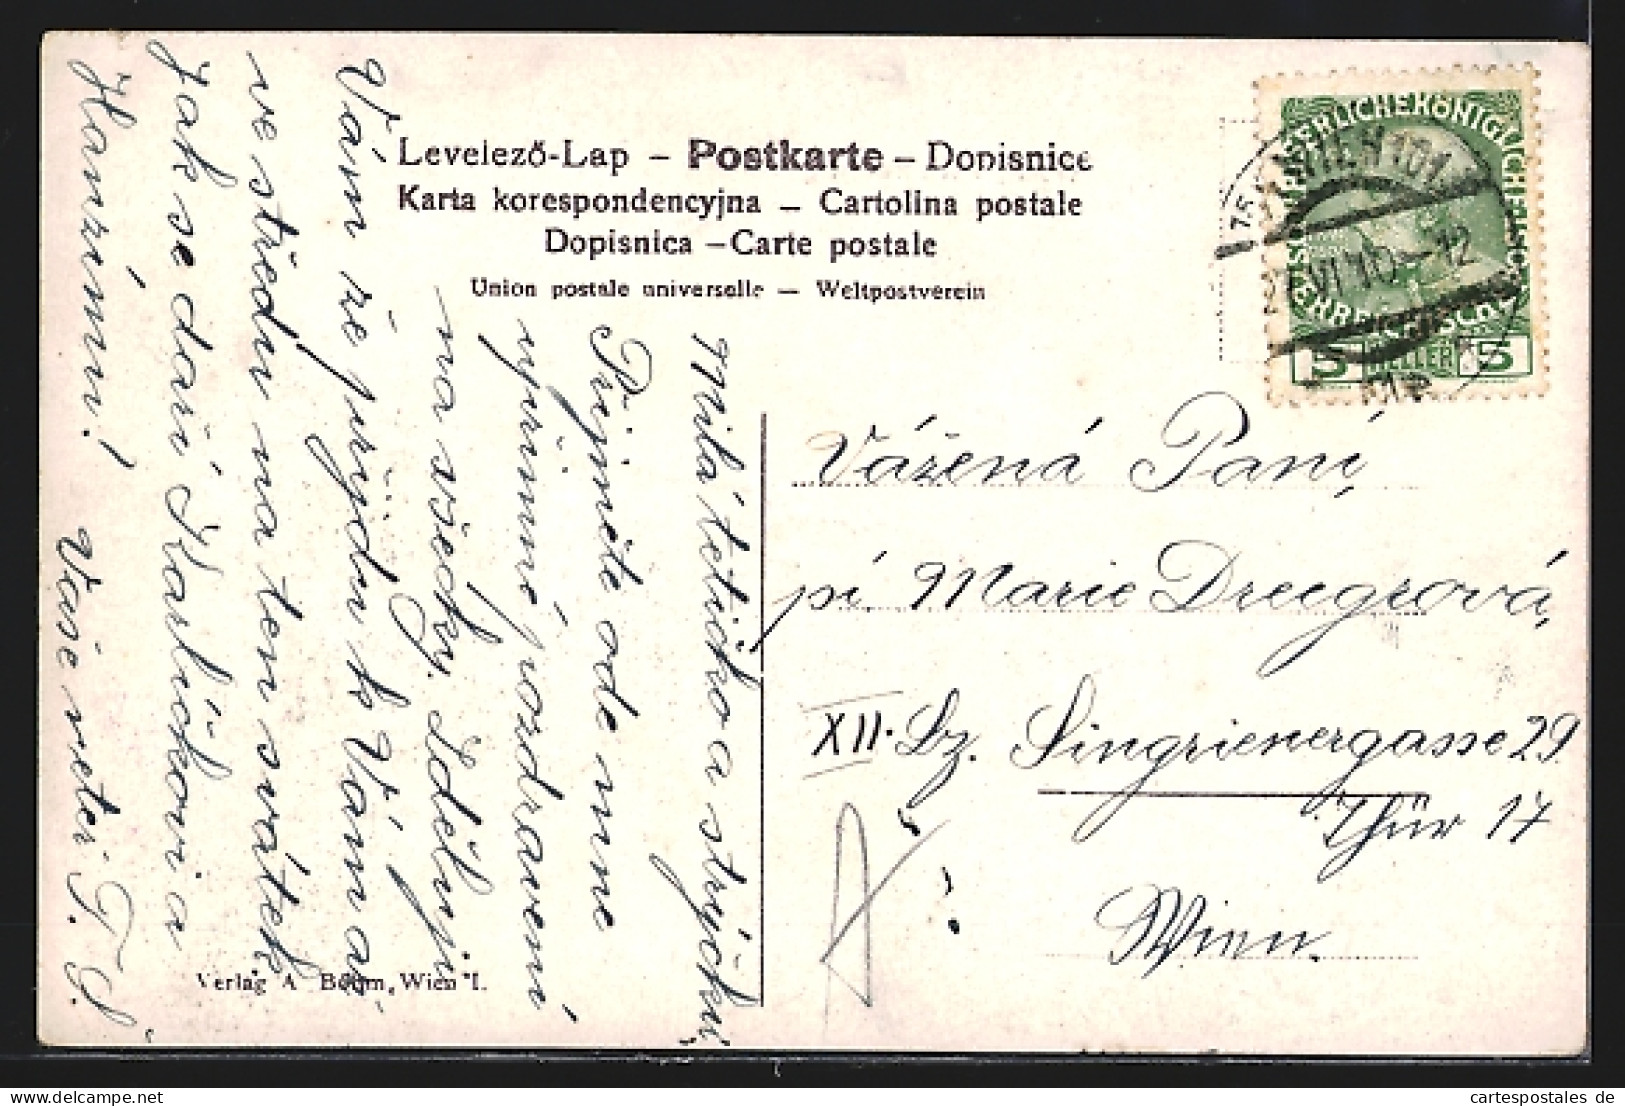 Levelező-Lap – Postkarte – Dopisnice
Karta korespondencyjna – Cartolina postale
Dopisnica – Carte postale
Union postale universelle — Weltpostverein
ÖSTERREICHISCHE
KAISERLICHE KÖNIGLICHE POST
5 HELLER 5
WIEN 101
VI 10–12
Vážená Paní,
pí Marie Dreegrová,
XII. Bz. Singrienergasse 29.
Thür 17
Wien.
Milá tetičko a strýčku,
Přijměte ode mne
upřímné pozdravení
na všecky. Sděluji
Vám že přijdu k Vám a
ve středu na ten svátek
jak se daří Karlíčkovi a
Vaše neteř
Verlag A. Böhm, Wien I.
cartespostales de
www.cartespostales-de-collection.com